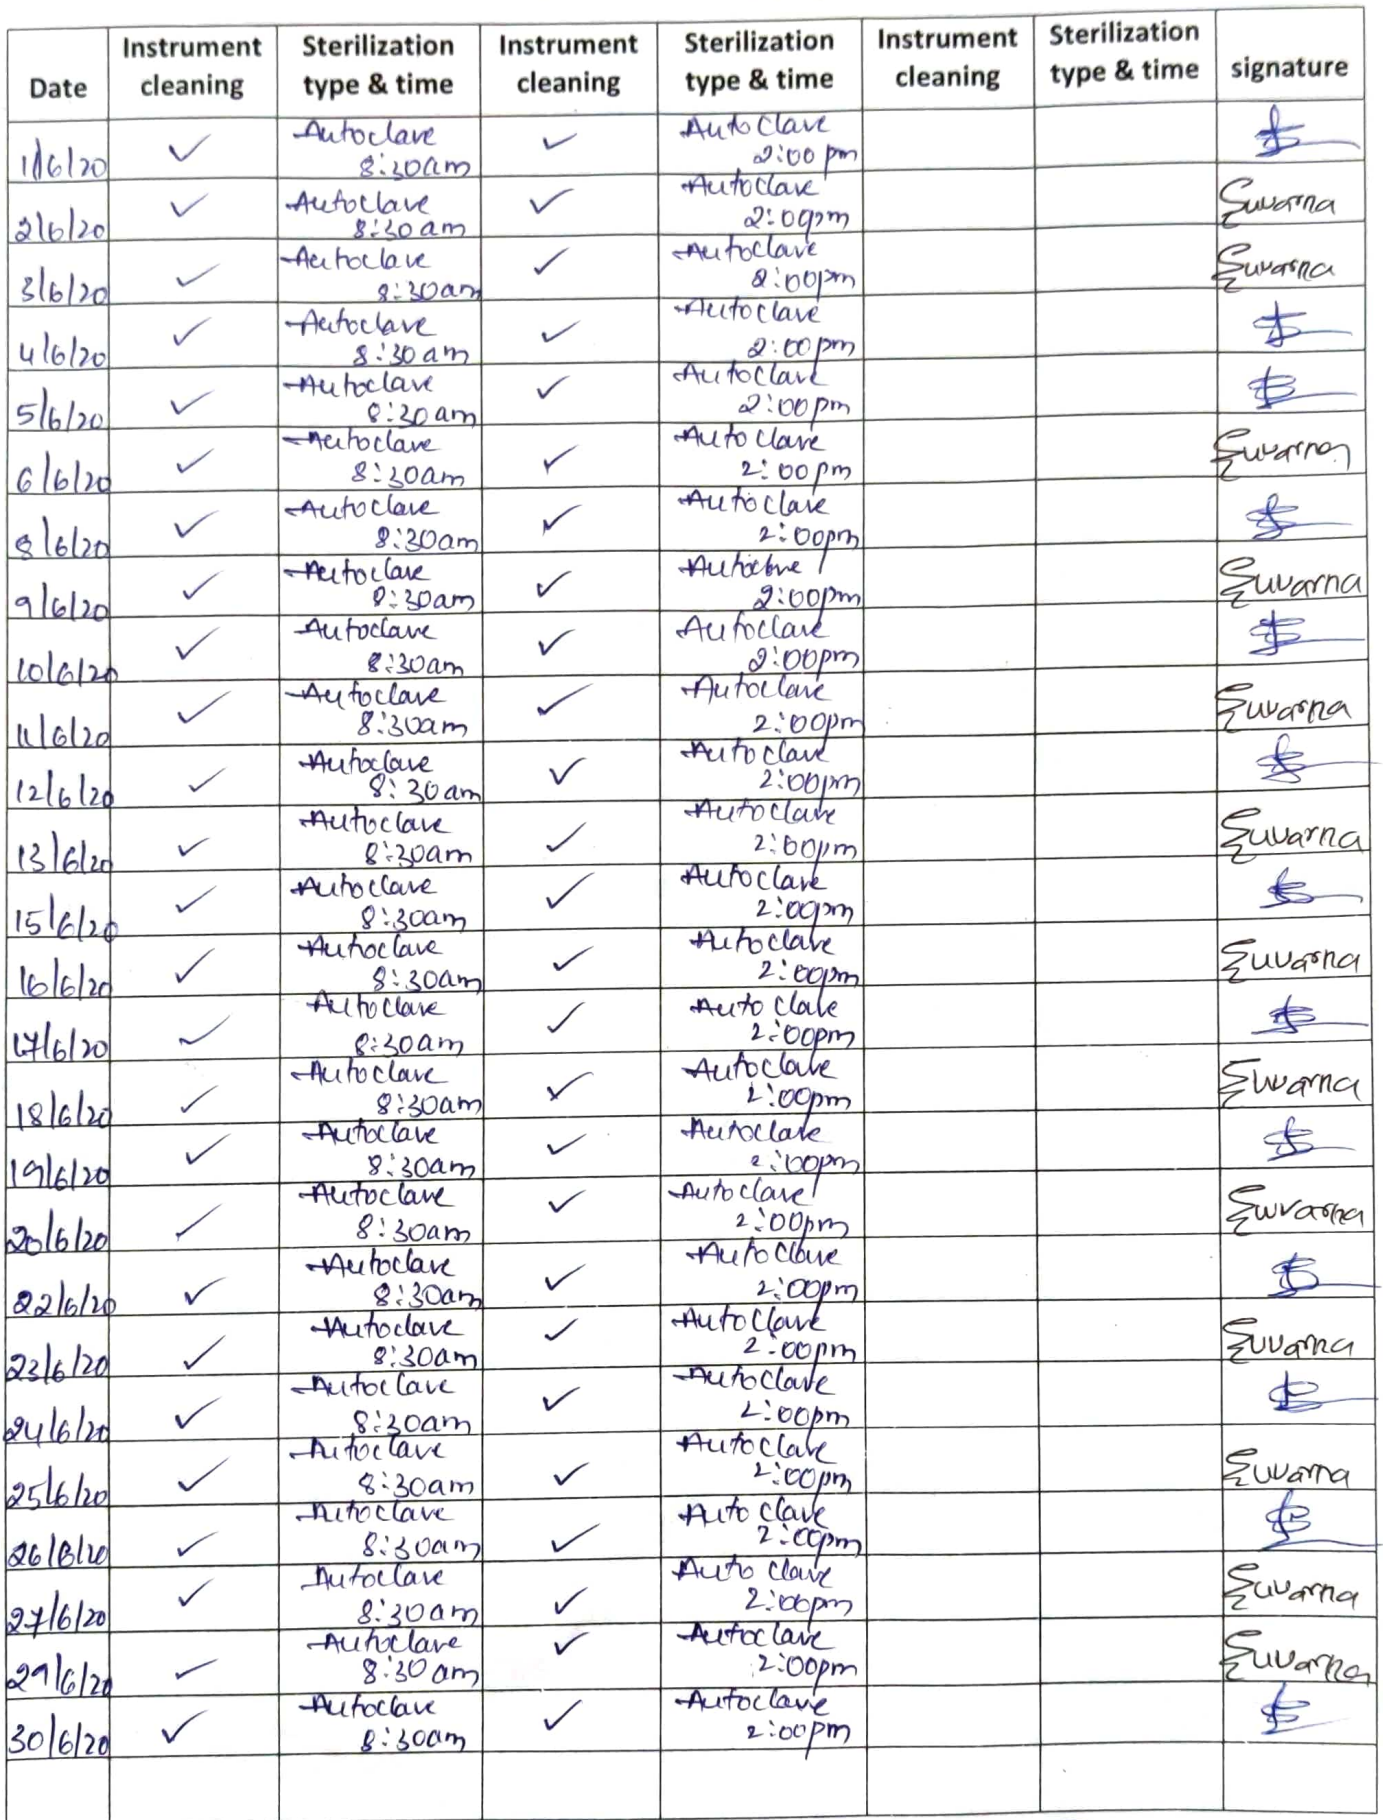 Date Instrument cleaning Sterilization type & time Instrument cleaning Sterilization type & time Instrument cleaning Sterilization type & time signature
1/6/20 ✓ Autoclave 8:30am ✓ Autoclave 2:00pm
2/6/20 ✓ Autoclave 8:30am ✓ Autoclave 2:00pm Suvarna
3/6/20 ✓ Autoclave 8:30am ✓ Autoclave 2:00pm Suvarna
4/6/20 ✓ Autoclave 8:30am ✓ Autoclave 2:00pm
5/6/20 ✓ Autoclave 8:30am ✓ Autoclave 2:00pm
6/6/20 ✓ Autoclave 8:30am ✓ Autoclave 2:00pm Suvarna
8/6/20 ✓ Autoclave 8:30am ✓ Autoclave 2:00pm
9/6/20 ✓ Autoclave 8:30am ✓ Autoclave 2:00pm Suvarna
10/6/20 ✓ Autoclave 8:30am ✓ Autoclave 2:00pm
11/6/20 ✓ Autoclave 8:30am ✓ Autoclave 2:00pm Suvarna
12/6/20 ✓ Autoclave 8:30am ✓ Autoclave 2:00pm
13/6/20 ✓ Autoclave 8:30am ✓ Autoclave 2:00pm Suvarna
15/6/20 ✓ Autoclave 8:30am ✓ Autoclave 2:00pm
16/6/20 ✓ Autoclave 8:30am ✓ Autoclave 2:00pm Suvarna
17/6/20 ✓ Autoclave 8:30am ✓ Autoclave 2:00pm
18/6/20 ✓ Autoclave 8:30am ✓ Autoclave 2:00pm Suvarna
19/6/20 ✓ Autoclave 8:30am ✓ Autoclave 2:00pm
20/6/20 ✓ Autoclave 8:30am ✓ Autoclave 2:00pm Suvarna
22/6/20 ✓ Autoclave 8:30am ✓ Autoclave 2:00pm
23/6/20 ✓ Autoclave 8:30am ✓ Autoclave 2:00pm Suvarna
24/6/20 ✓ Autoclave 8:30am ✓ Autoclave 2:00pm
25/6/20 ✓ Autoclave 8:30am ✓ Autoclave 2:00pm Suvarna
26/6/20 ✓ Autoclave 8:30am ✓ Autoclave 2:00pm
27/6/20 ✓ Autoclave 8:30am ✓ Autoclave 2:00pm Suvarna
29/6/20 ✓ Autoclave 8:30am ✓ Autoclave 2:00pm Suvarna
30/6/20 ✓ Autoclave 8:30am ✓ Autoclave 2:00pm